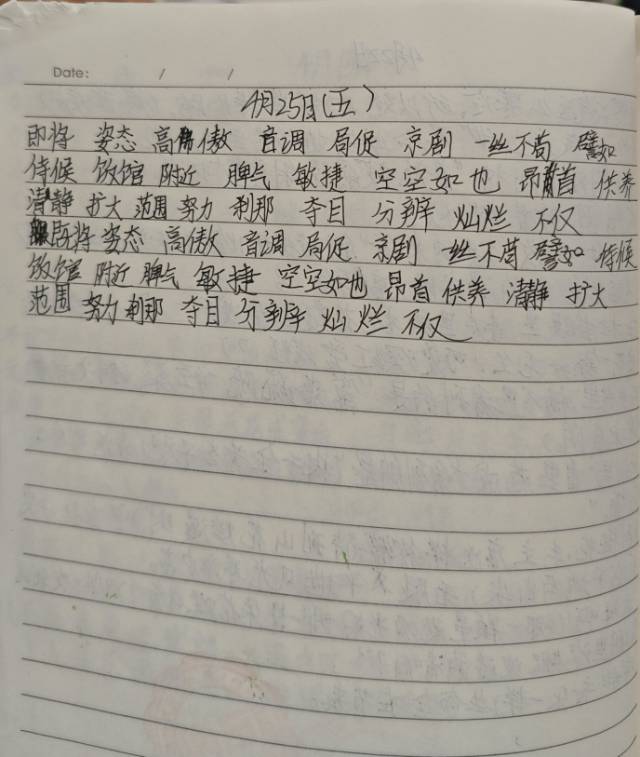 Date: / /
4月25日(五)
即将 姿态 高傲 音调 局促 京剧 一丝不苟 譬如
侍候 饭馆 附近 脾气 敏捷 空空如也 昂首 供养
清静 扩大 范围 努力 刹那 夺目 分辨 灿烂 不仅
即将 姿态 高傲 音调 局促 京剧 一丝不苟 譬如 侍候
饭馆 附近 脾气 敏捷 空空如也 昂首 供养 清静 扩大
范围 努力 刹那 夺目 分辨 灿烂 不仅